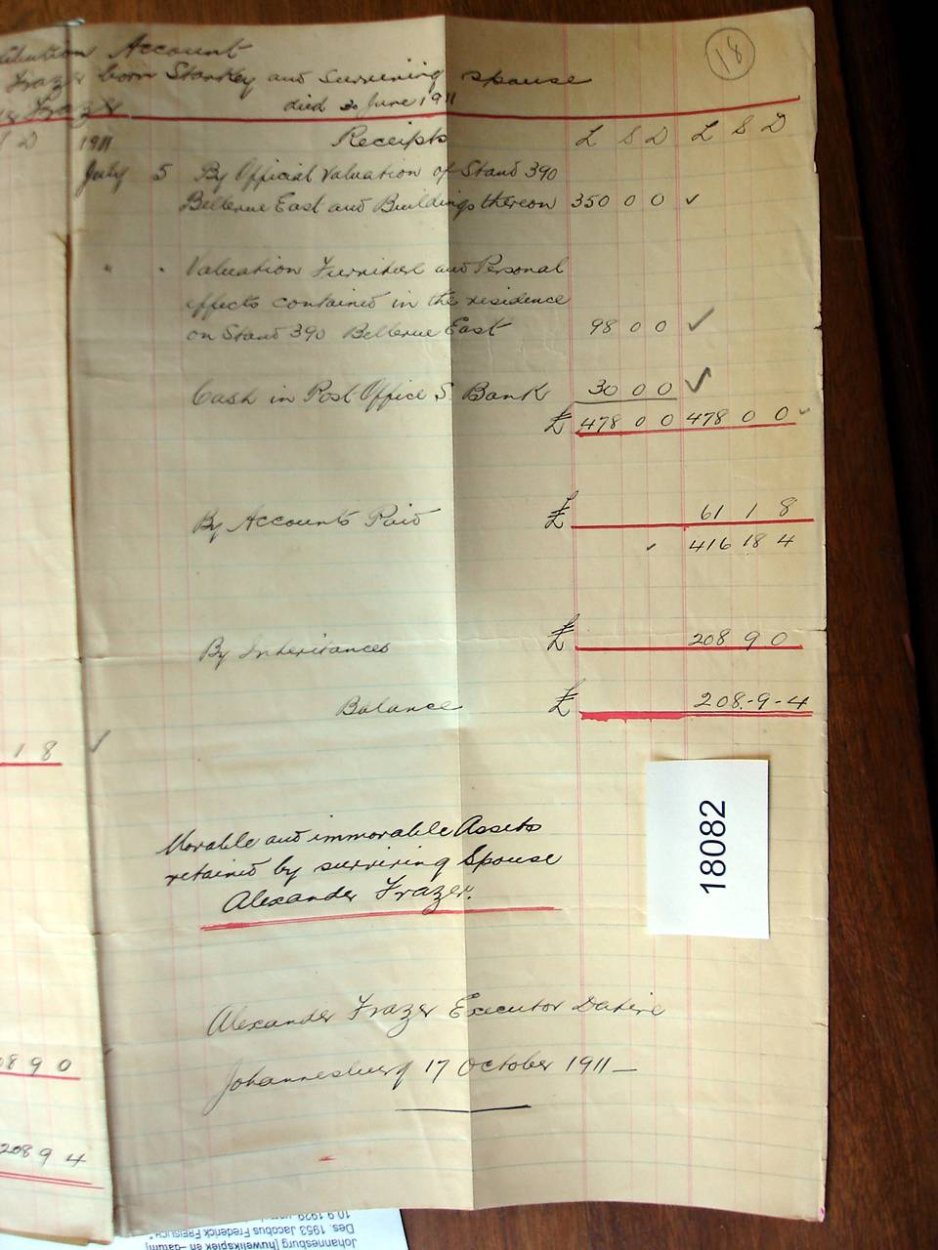 18
Account
Frazer born Stankey and Surviving spouse
Frazer died 2 June 1911
D 1911 Receipts £ S D £ S D
July 5 By Official Valuation of Stand 390
Bellevue East and Buildings thereon 350 0 0 ✓
" " Valuation Furniture and Personal
effects contained in the residence
on Stand 390 Bellevue East 98 0 0 ✓
Cash in Post Office S. Bank 30 0 0 ✓
£ 478 0 0 478 0 0 ✓
By Accounts Paid £ 61 1 8
✓ 416 18 4
By Inheritances £ 208 9 0
Balance £ 208.-9-4
1 8 ✓
Movable and immovable Assets
retained by surviving Spouse
Alexander Frazer.
18082
Alexander Frazer Executor Dative
Johannesburg 17 October 1911—
8 9 0
208 9 4
Johannesburg [huweliksplek en -datum]
Des. 1953 Jacobus Frederick
10.9.1929